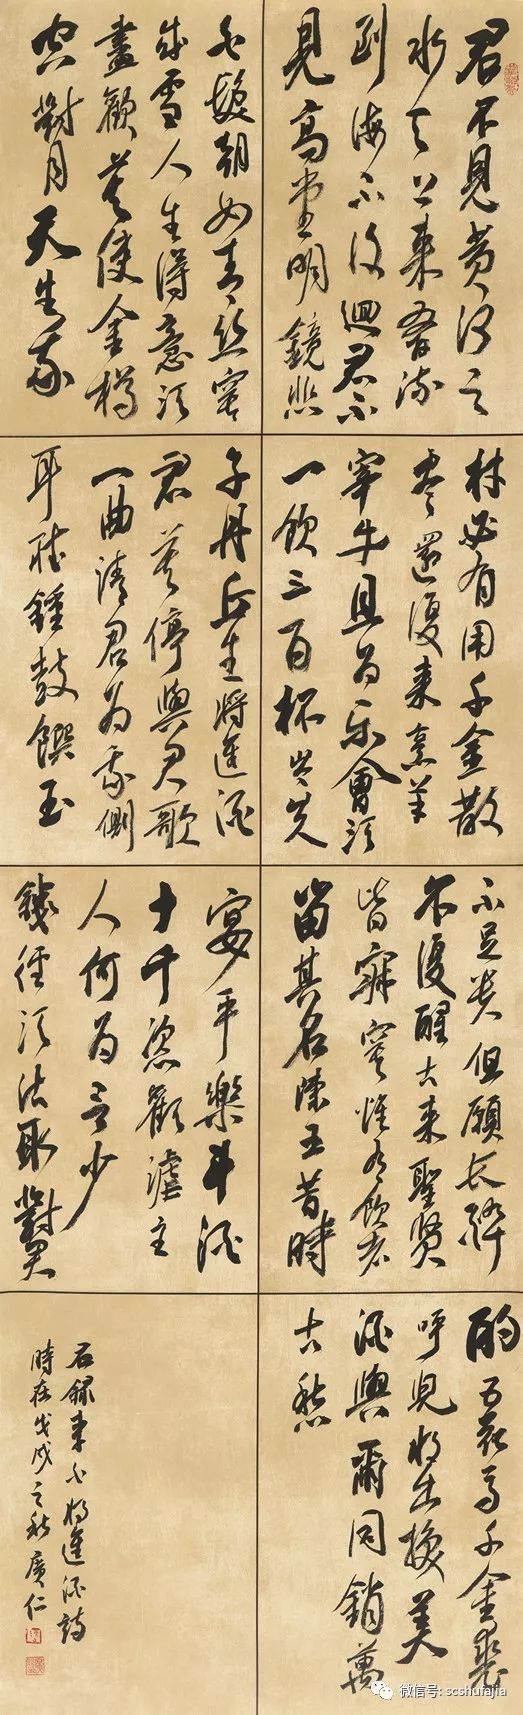 君不見黃河之
水天上來奔流
到海不復迴君不
見高堂明鏡悲
白髮朝如青絲暮
成雪人生得意須
盡歡莫使金樽
空對月天生我
材必有用千金散
盡還復來烹羊
宰牛且為樂會須
一飲三百杯岑夫
子丹丘生將進酒
君莫停與君歌
一曲請君為我側
耳聽鍾鼓饌玉
不足貴但願長醉
不復醒古來聖賢
皆寂寞惟有飲者
留其名陳王昔時
宴平樂斗酒
十千恣歡謔主
人何為言少
錢徑須沽取對君
酌五花馬千金裘
呼兒將出換美
酒與爾同銷萬
古愁
右錄李白將進酒詩
時在戊戌之秋廣仁
微信号: scshufajia